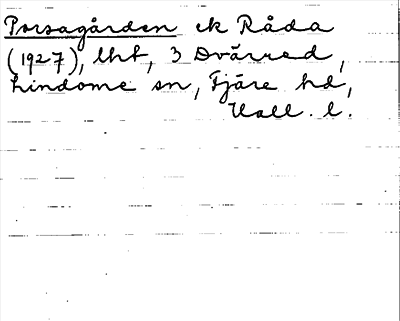 Porsagården ek Råda
(1927), lht, 3 Dvärred,
Lindome sn, Fjäre hd,
Hall. l.